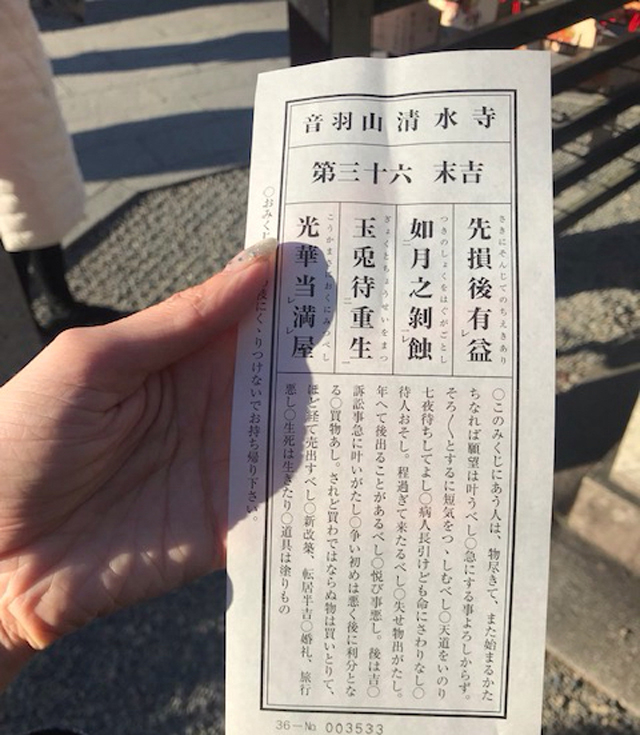 音羽山 清水寺
第三十六 末吉
先損後有益
さきにそんじてのちえきあり
如月之剝蝕
つきのしょくをはぐがごとし
玉兎待重生
ぎょくとちょうせいをまつ
光華当満屋
こうかまさにおくにみつべし
〇このみくじにあう人は、物尽きて、また始まるかた
ちなれば願望は叶うべし〇急にする事よろしからず。
そろ〳〵とするに短気をつゝしむべし〇天道をいのり
七夜待ちしてよし〇病人長引けども命にさわりなし〇
待人おそし。程過ぎて来たるべし〇失せ物出がたし。
年へて後出ることがあるべし〇悦び事悪し。後は吉〇
訴訟事急に叶いがたし〇争い初めは悪く後に利分とな
る〇買物あし。されど買わではならぬ物は買いとりて、
ほど経て売出すべし〇新改築、転居半吉〇婚礼、旅行
悪し〇生死は生きたり〇道具は塗りもの
〇おみくじ
にくゝりつけないでお持ち帰り下さい。
36－№ 003533